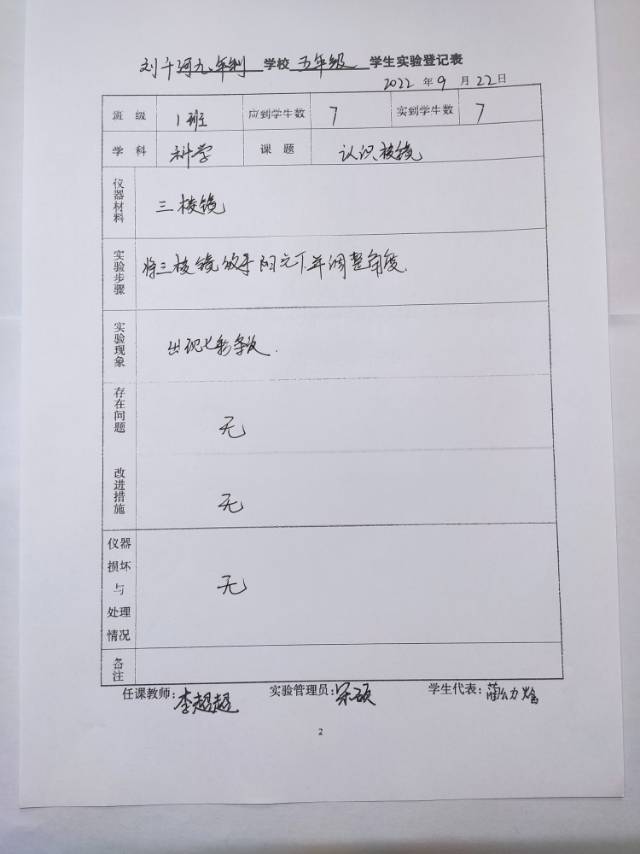 刘斗河九年制 学校 五年级 学生实验登记表
2022 年 9 月 22 日
班 级 1班 应到学生数 7 实到学生数 7
学 科 科学 课 题 认识棱镜
仪器材料 三棱镜
实验步骤 将三棱镜放于阳光下并调整角度.
实验现象 出现七彩条纹.
存在问题 无
改进措施 无
仪器损坏与处理情况 无
备注
任课教师:李超超 实验管理员:宋硕 学生代表:
2